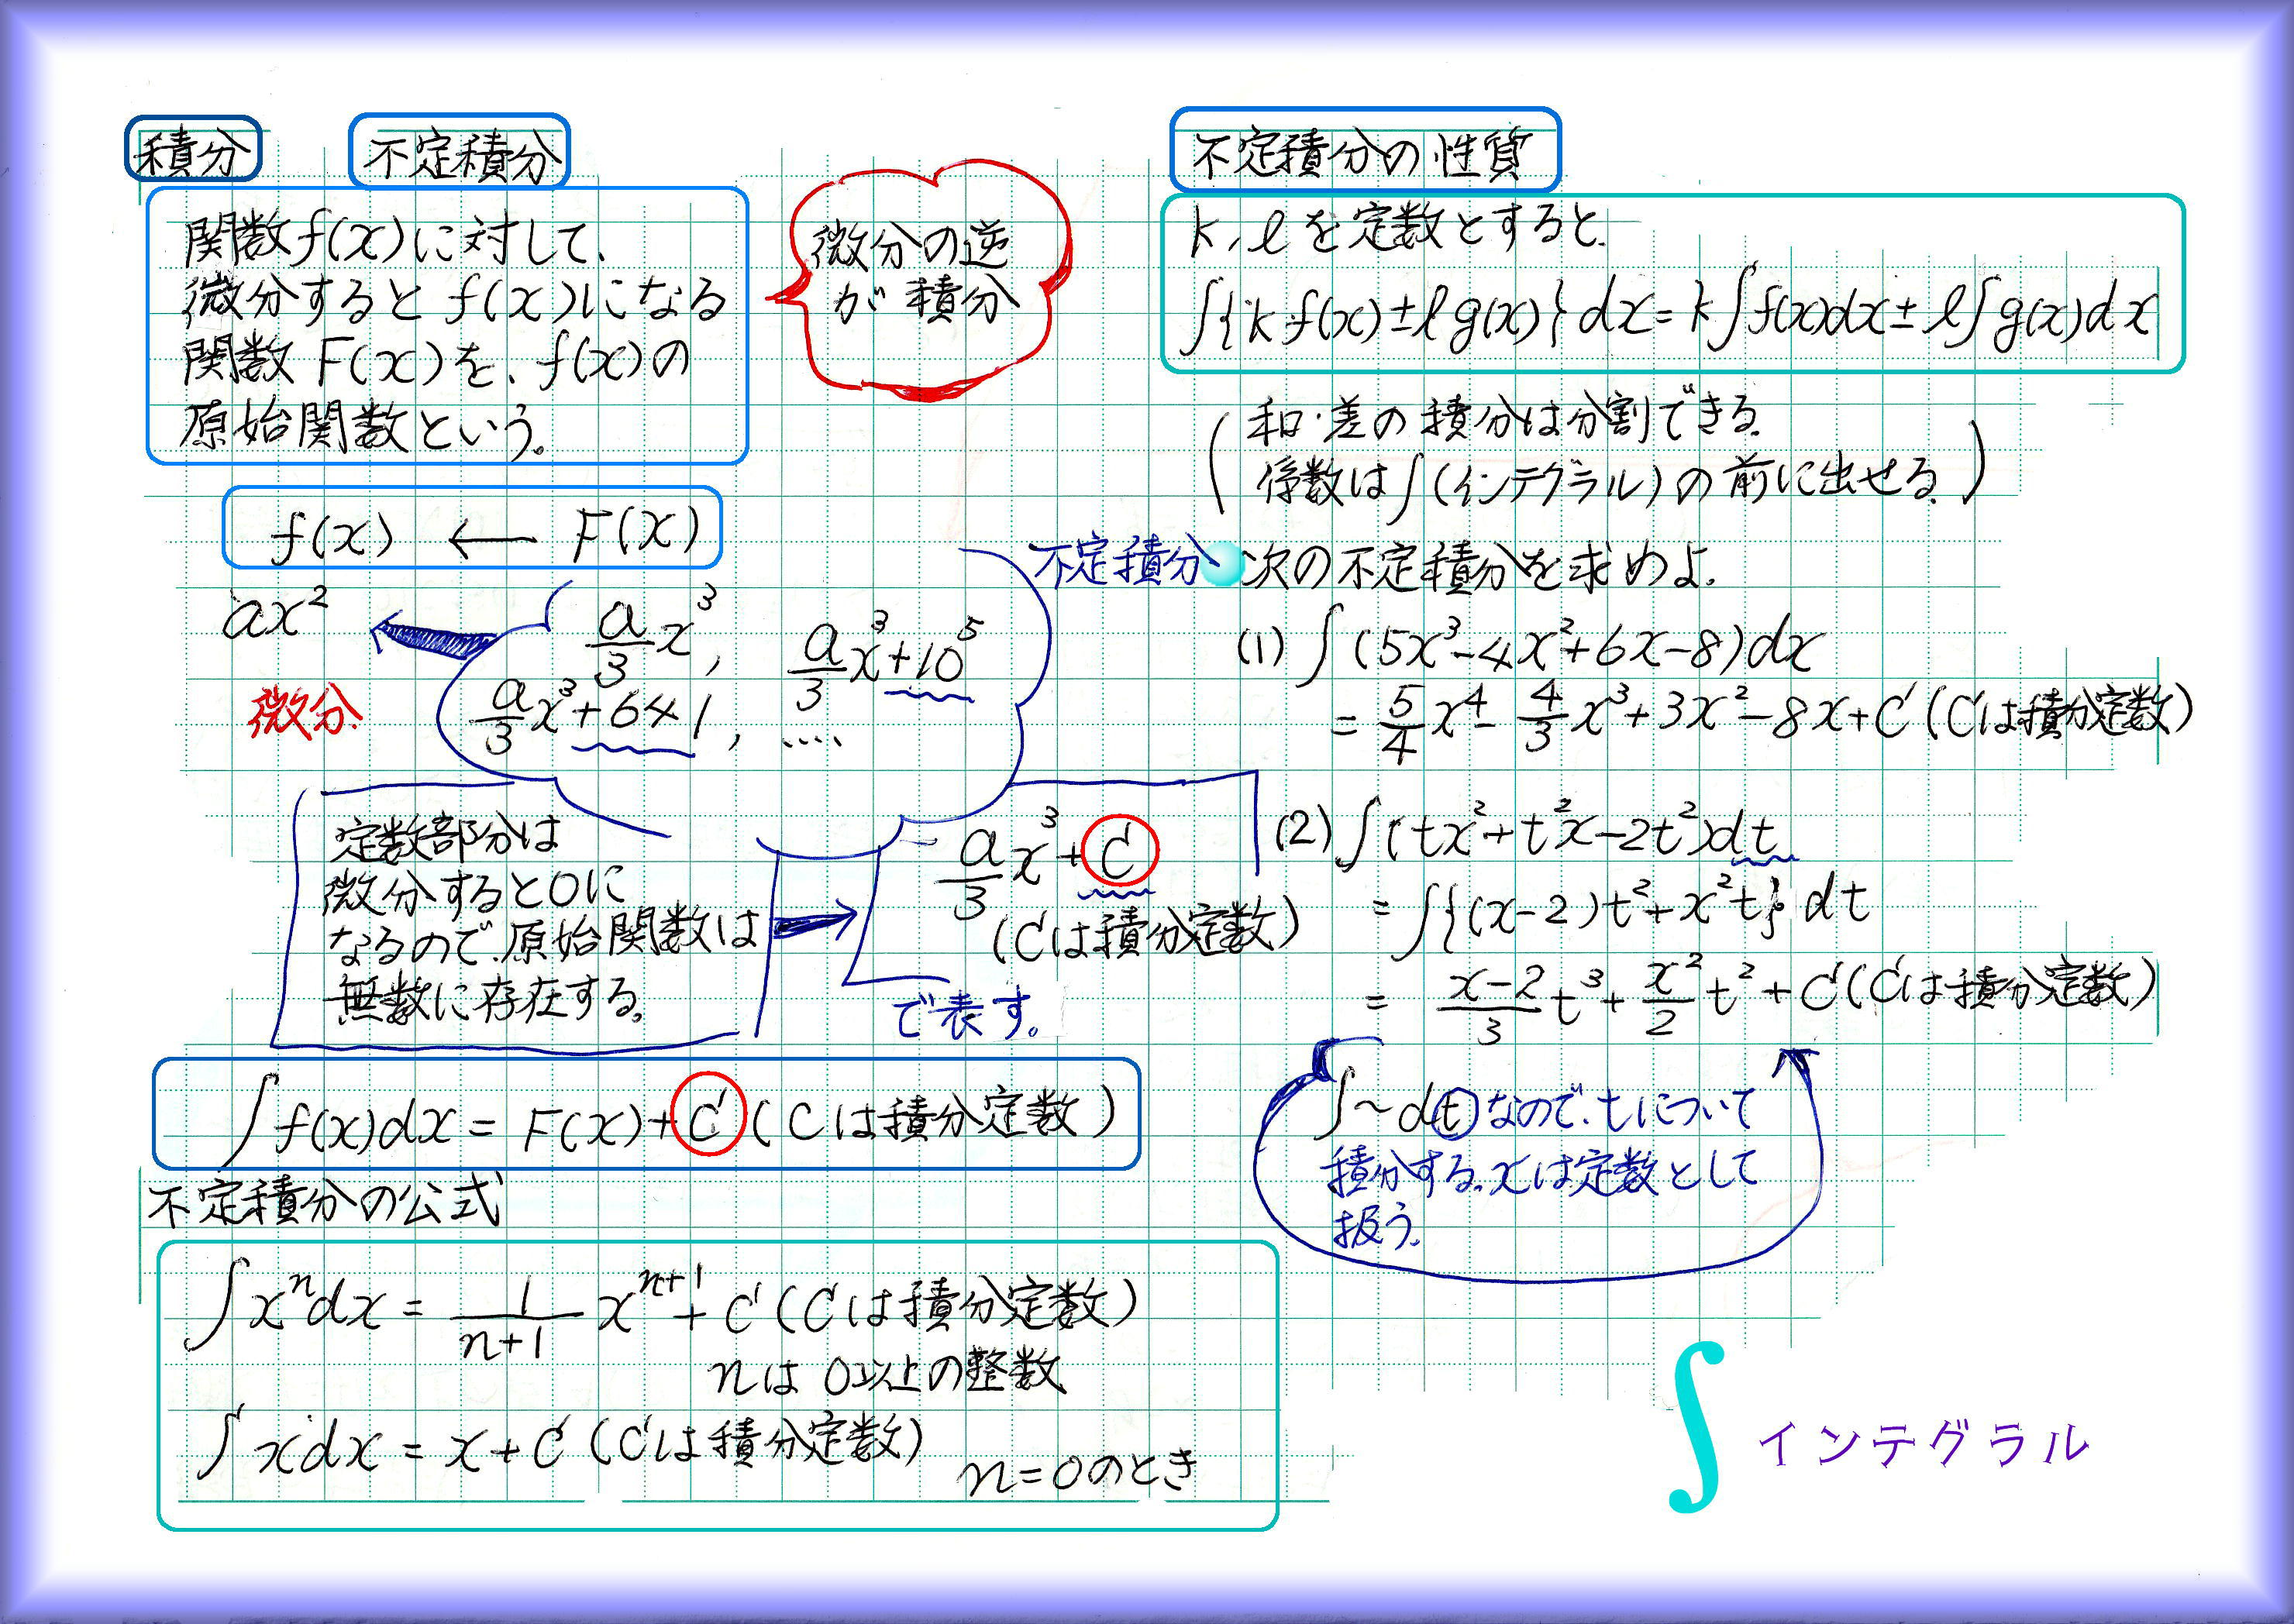 積分
不定積分
関数f(x)に対して、
微分するとf(x)になる
関数F(x)を、f(x)の
原始関数という。
微分の逆
が積分
f(x) ← F(x)
ax²
微分
a/3 x³, a/3 x³+10⁵
a/3 x³+641, ....
定数部分は
微分すると0に
なるので、原始関数は
無数に存在する。
不定積分
a/3 x³+C
(Cは積分定数)
で表す。
∫f(x)dx = F(x)+C (Cは積分定数)
不定積分の公式
∫xⁿdx = 1/(n+1) xⁿ⁺¹ + C (Cは積分定数)
nは0以上の整数
∫xdx = x+C (Cは積分定数)
n=0のとき
不定積分の性質
k, lを定数とすると、
∫{kf(x)±lg(x)}dx = k∫f(x)dx ± l∫g(x)dx
(和・差の積分は分割できる。
係数は∫(インテグラル)の前に出せる。)
次の不定積分を求めよ。
(1) ∫(5x³-4x²+6x-8)dx
= 5/4 x⁴ - 4/3 x³+3x²-8x+C (Cは積分定数)
(2) ∫(tx²+t²x-2t²)dt
= ∫{(x-2)t²+x²t}dt
= (x-2)/3 t³ + x²/2 t² + C (Cは積分定数)
∫~dtなので、tについて
積分する。xは定数として
扱う。
∫ インテグラル